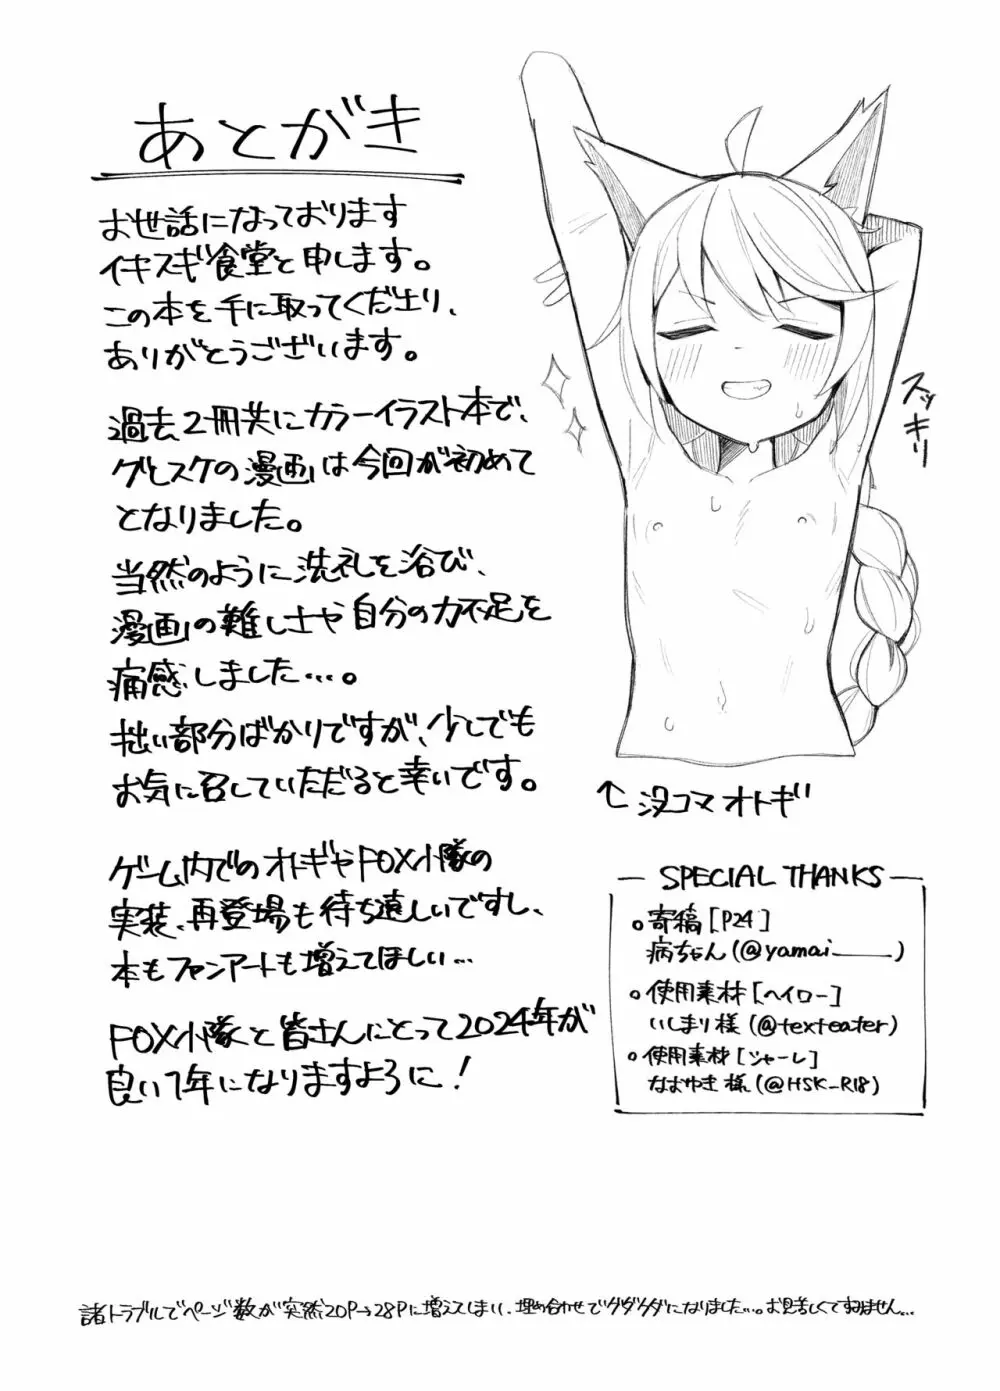 あとがき
お世話になっております
イキスギ食堂と申します。
この本を手に取ってくださり、
ありがとうございます。
過去2冊共にカラーイラスト本で、
グヒスケの漫画は今回が初めて
となりました。
当然のように洗礼を浴び、
漫画の難しさや自分の力不足を
痛感しました…。
拙い部分ばかりですが、少しでも
お気に召していただだると幸いです。
ゲーム内でのオトギやFOX小隊の
実装、再登場も待ち遠しいですし、
本もファンアートも増えてほしい…
FOX小隊と皆さんにとって2024年が
良い1年になりますように!
スッキリ
↑没コマオトギ
SPECIAL THANKS
○寄稿[P24]
病ちゃん(@yamai____)
○使用素材[ヘイロー]
いしまり様(@texteater)
○使用素材[シャーレ]
なおゆき様(@HSK_R18)
諸トラブルでページ数が突然20P→28Pに増えてしまい、埋め合わせでグダグダになりました…。お見苦しくてすみません…